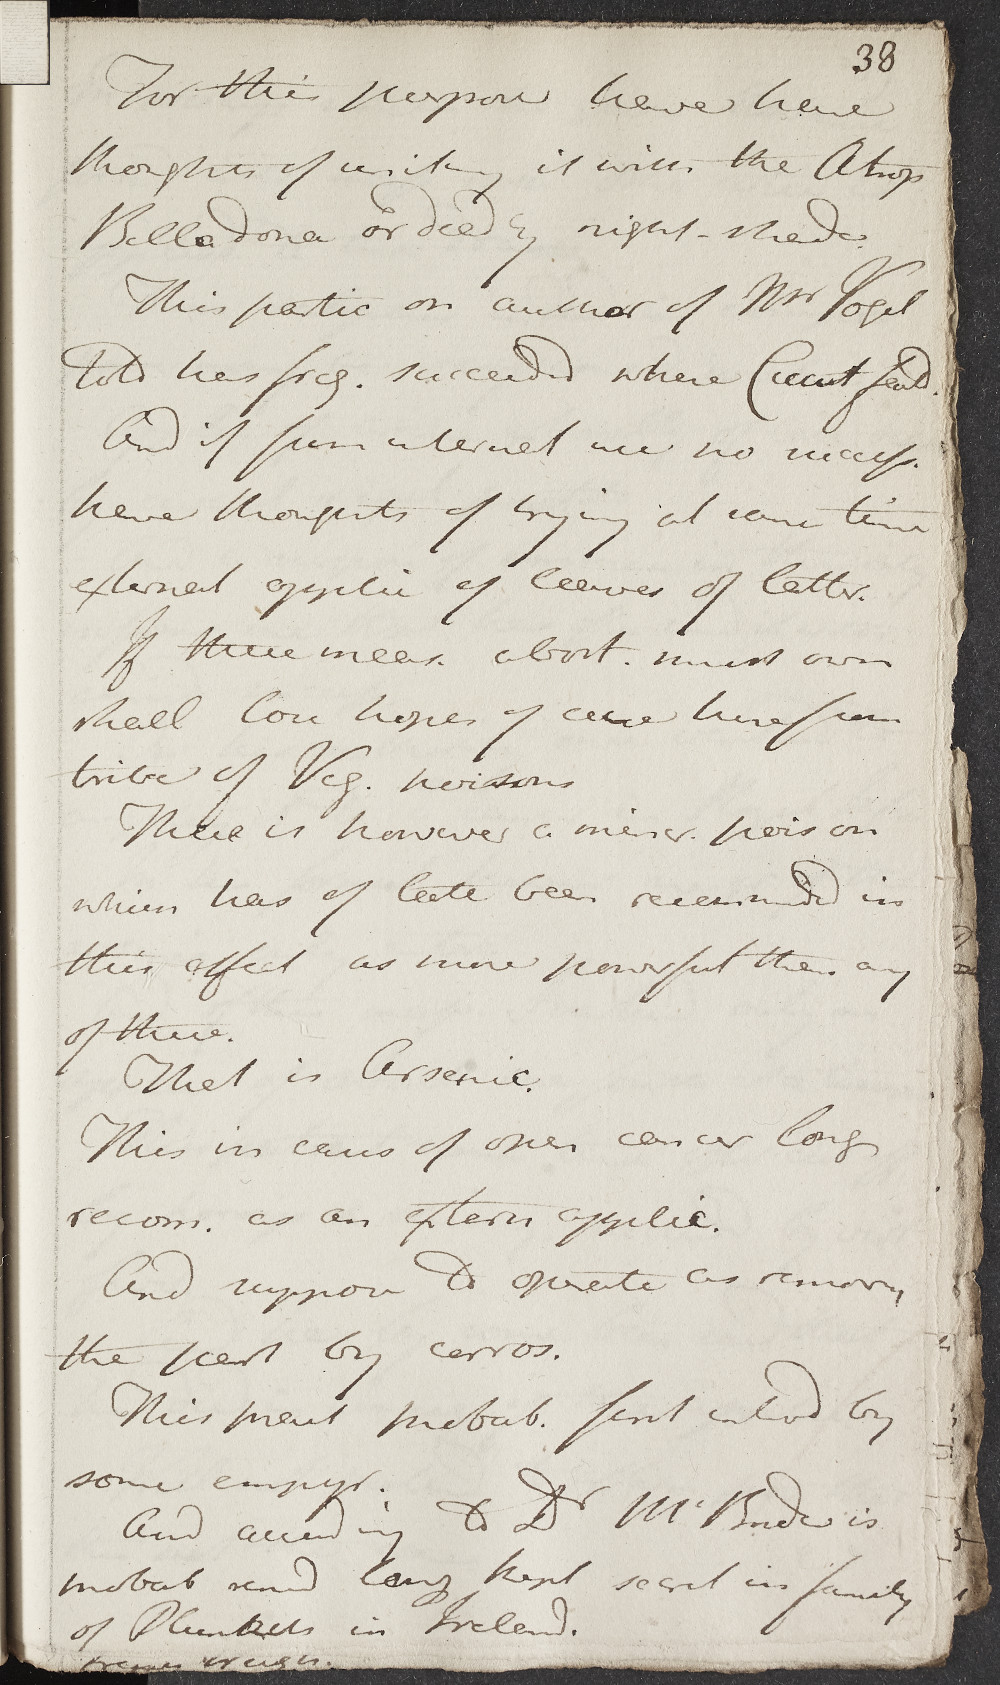 38
For this purpose have have
thoughts of uniting it with the Atrop
Belladona or deadly night-shade.
This partic on author of Mr Vogel
told has freq. succeeded where Cicut faild.
And if from internal use no success.
have thoughts of trying at same time
external applic of leaves of latter.
If these meas. abort. must own
shall lose hopes of cure here from
tribe of Veg. poisons
There is however a miner. poison
which has of late been recommended in
this affect as more powerful then any
of these.
That is Arsenic.
This in cases of open cancer long
recom. as an extern applic.
And suppose to operate as removg
the part by corros.
This pract probab. first introd by
some empyr.
And according to Dr McBride is
probab remd long kept secret in family
of Plunkets in Ireland.